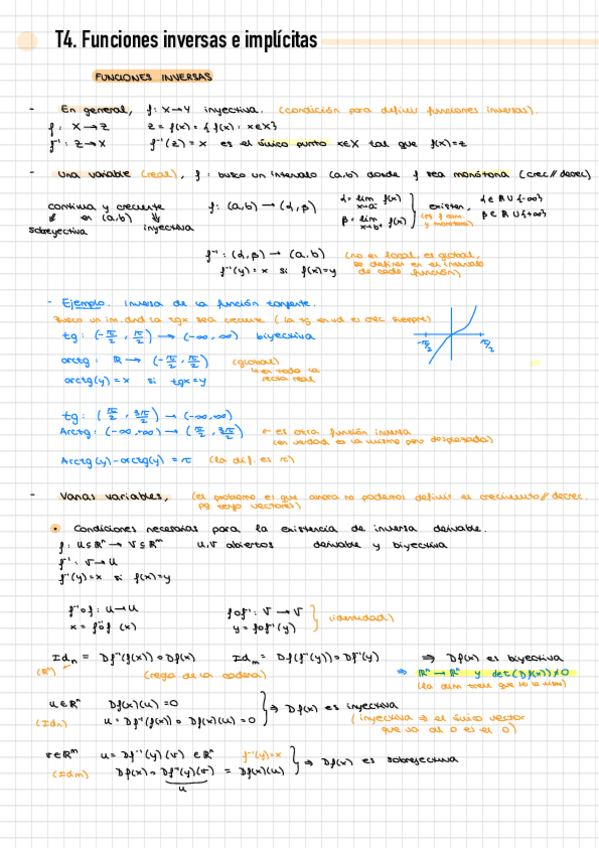 T4. Funciones inversas e implícitas
FUNCIONES INVERSAS
- En general, f: X→Y inyectiva. (condición para definir funciones inversas).
f: X→Z z = f(x) = {f(x) : x∈X}
f⁻¹: Z→X f⁻¹(z) = x es el único punto x∈X tal que f(x)=z
- Una variable (real), f: busco un intervalo (a,b) donde f sea monótona (crec // decrec)
continua y creciente f: (a,b) → (α,β) α = lim x→a⁺ f(x) existen, α∈ℝ∪{-∞}
en (a,b) β = lim x→b⁻ f(x) β∈ℝ∪{+∞}
sobreyectiva inyectiva y monótona)
f⁻¹: (α,β) → (a,b) (no es local, es global,
f⁻¹(y) = x si f(x)=y se definen en el intervalo
de cada función)
- Ejemplo. Inversa de la función tangente.
Busco un int. dnd la tgx sea creciente (la tg en vd es crec siempre)
tg: (-π/2, π/2) → (-∞, ∞) biyectiva
-π/2 π/2
arctg: ℝ → (-π/2, π/2) (global)
arctg(y) = x si tgx=y en toda la
recta real
tg: (π/2, 3π/2) → (-∞,∞)
Arctg: (-∞,+∞) → (π/2, 3π/2) ← es otra función inversa
(en verdad es la misma pero desplazada)
Arctg(y)-arctg(y) = π (la dif. es π)
- Varias variables, (es problema es que ahora no podemos definir el crecimiento // decrec.
pq tengo vectores)
• Condiciones necesarias para la existencia de inversa derivable.
f: U⊆ℝⁿ → V⊆ℝᵐ U,V abiertos derivable y biyectiva
f⁻¹: V→U
f⁻¹(y)=x si f(x)=y
f⁻¹∘f: U→U f∘f⁻¹: V→V (identidad)
x = f⁻¹∘f (x) y = f∘f⁻¹(y)
Idn = Df⁻¹(f(x))∘Df(x) Idm = Df(f⁻¹(y))∘Df⁻¹(y) ⇒ Df(x) es biyectiva
(ℝⁿ) (regla de la cadena) ⇒ ℝⁿ→ℝⁿ y det(Df(x))≠0
(la dim tiene que ser la misma)
u∈ℝⁿ Df(x)(u) = 0 ⇒ Df(x) es inyectiva
(Idn) u = Df⁻¹(f(x))∘Df(x)(u) = 0 (inyectiva ⇒ el único vector
que va al 0 es el 0)
v∈ℝᵐ u = Df⁻¹(y)(v) ∈ℝⁿ f⁻¹(y)=x ⇒ Df(x) es sobreyectiva
(Idm) Df(x)∘Df⁻¹(y)(v) = Df(x)(u)
u